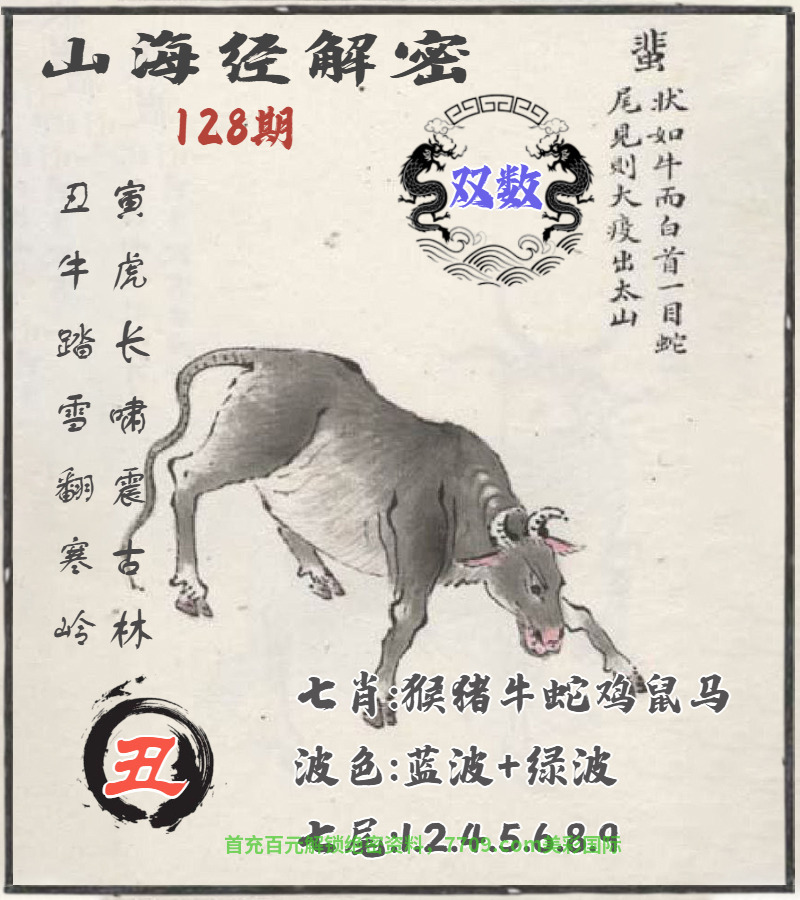 山海经解密
128期
蜚
状如牛而白首一目蛇
尾見则大疫出太山
双数
寅虎长啸震古林
丑牛踏雪翻寒岭
丑
七肖:猴猪牛蛇鸡鼠马
波色:蓝波+绿波
七尾:1.2.4.5.6.8.9
首充百元解锁绝密资料，7769.com美彩国际